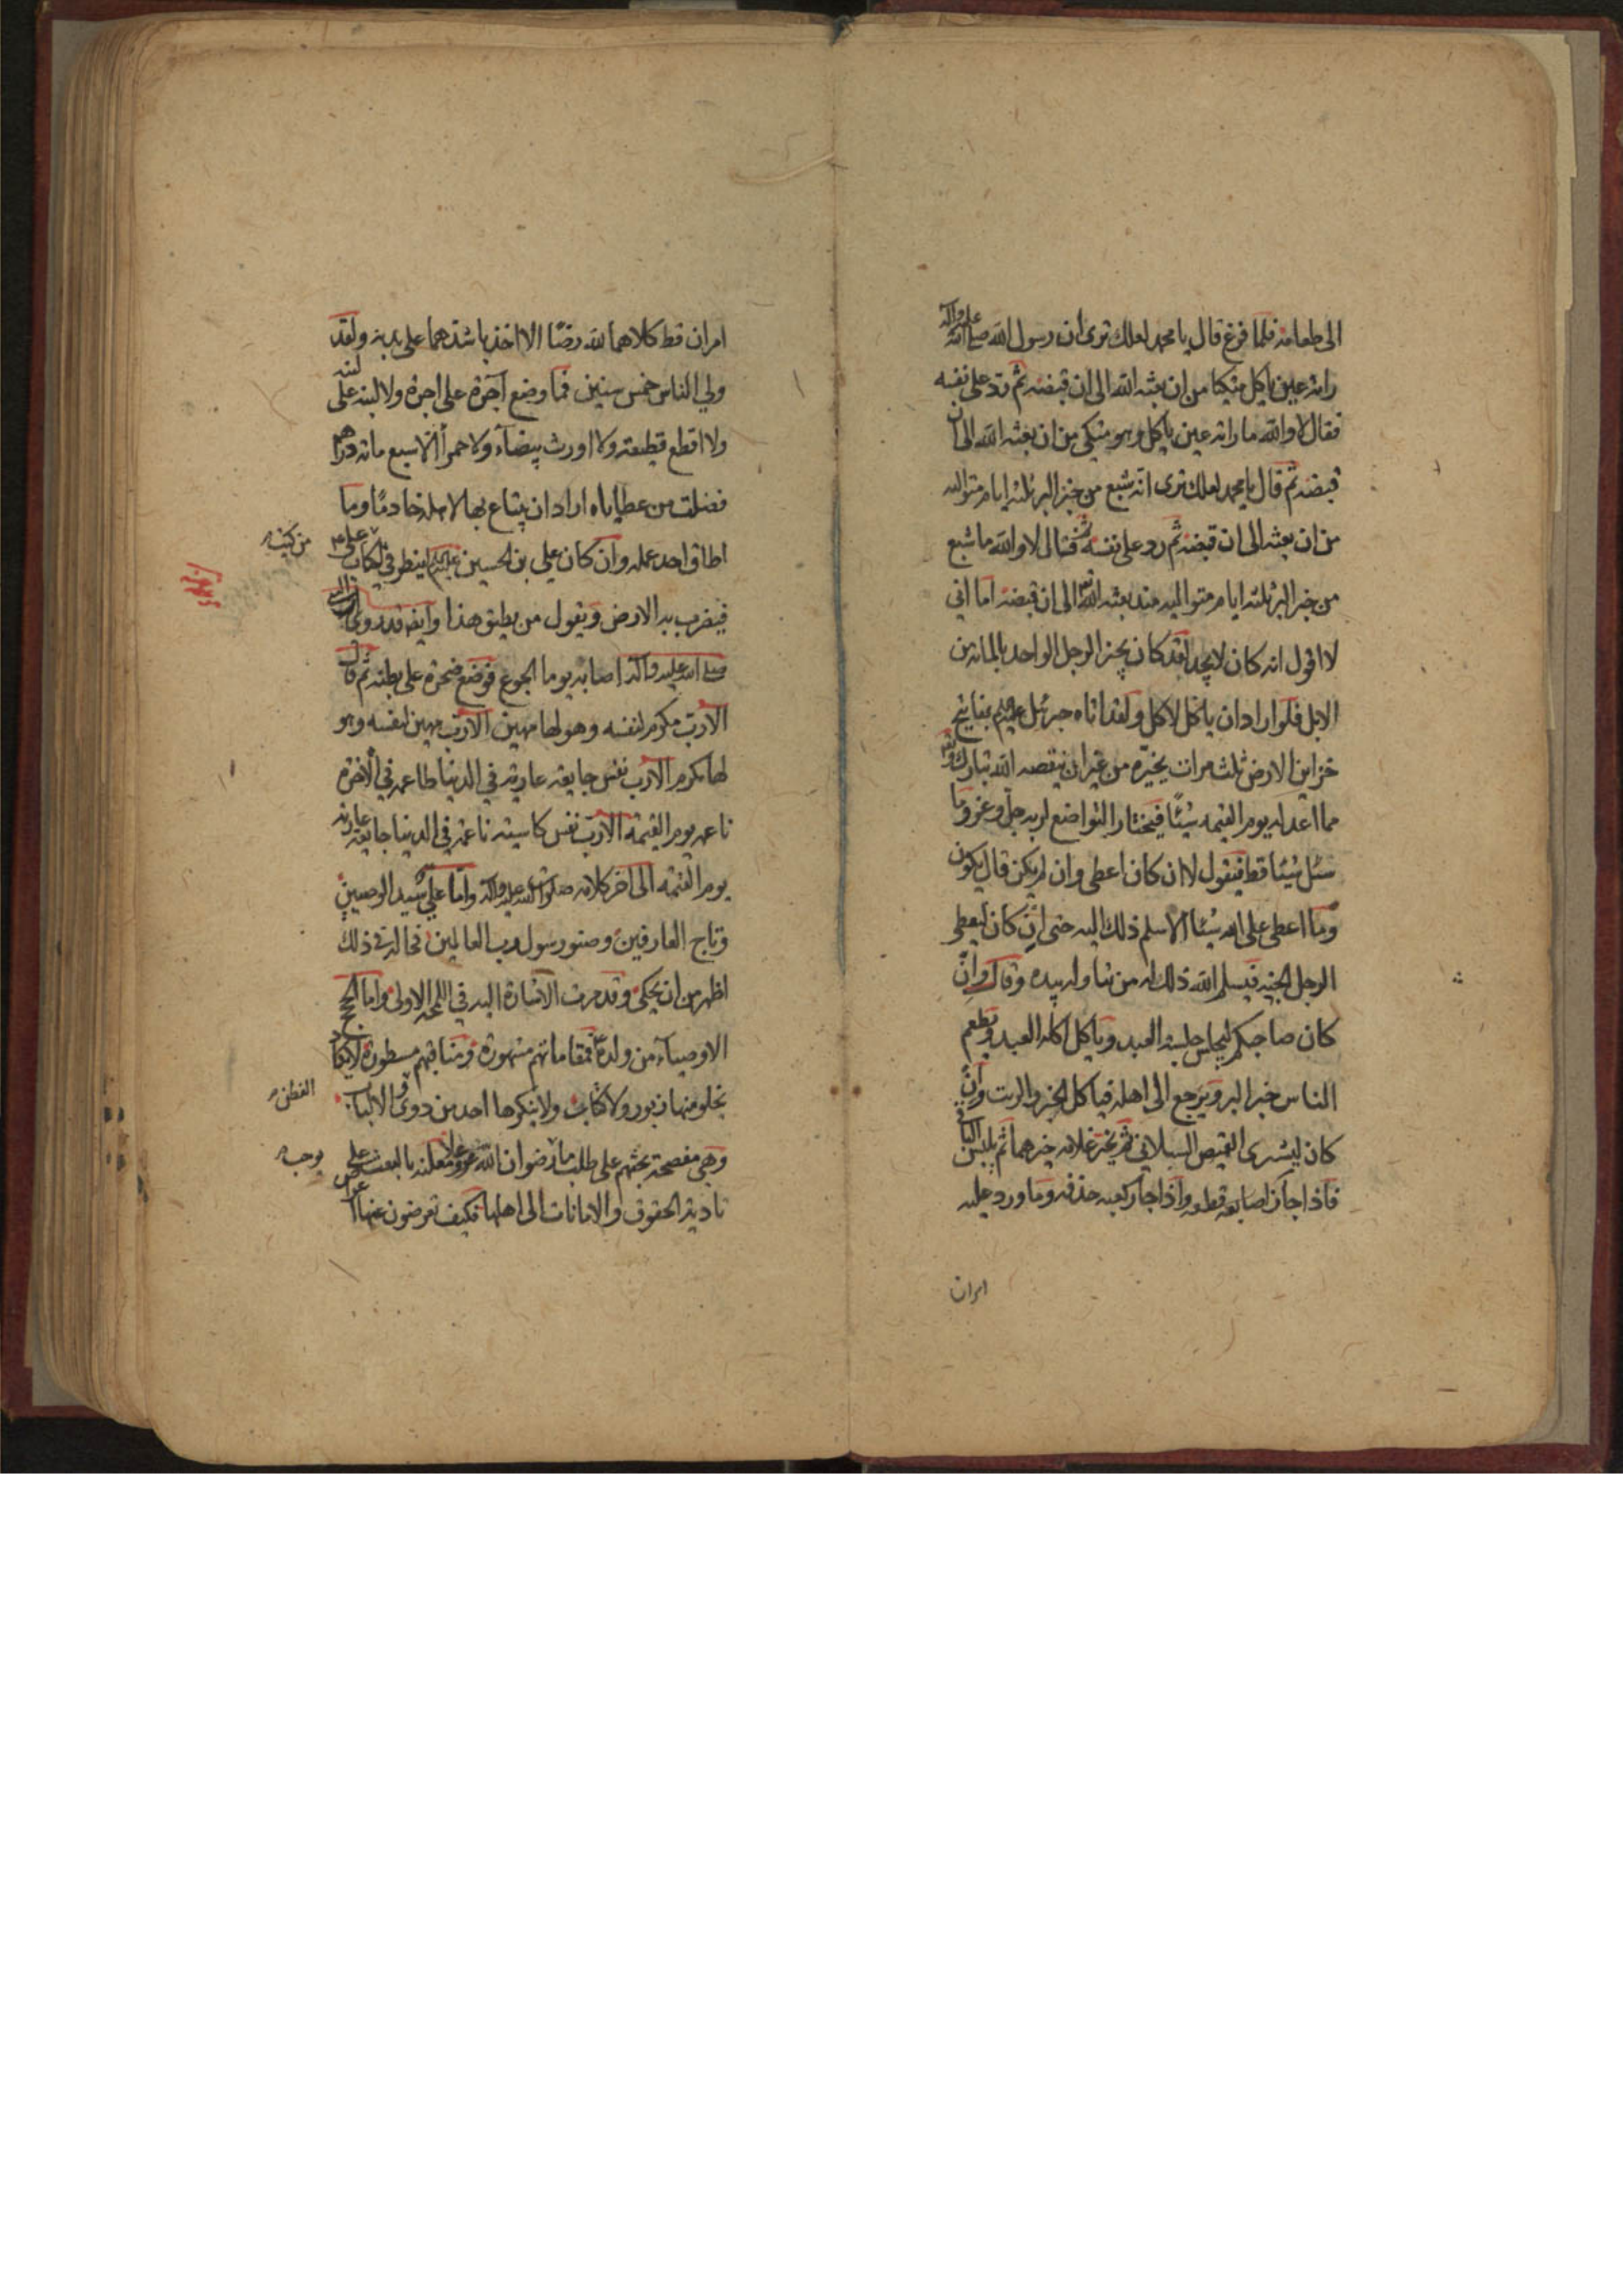 الى طعامه فلما فرغ قال يا محمد لعلك ترى ان رسول الله صلى الله عليه واله
راته عين ياكل متكيا من ان بعثه الله الى ان قبضه ثم رد على نفسه
فقال لا والله ما راته عين ياكل وهو متكى من ان بعثه الله الى ان
قبضه ثم قال يا محمد لعلك ترى انه شبع من خبز البر ثلثه ايام متواليه
من ان بعثه الى ان قبضه ثم رد على نفسه ثم قال لا والله ما شبع
من خبز البر ثلثه ايام متواليه منذ بعثه الله الى ان قبضه اما انى
لا اقول انه كان لا يجد لقد كان يجيز الرجل الواحد بالمائه من
الابل فلو اراد ان ياكل لاكل ولقد اتاه جبرئيل عليه السلام بمفاتيح
خزاين الارض ثلث مرات يخيره من غير ان ينقصه الله تبارك وتعالى
مما اعد له يوم القيمه شيئا فيختار التواضع لربه جل وعز وما
سئل شيئا قط فيقول لا ان كان اعطى وان لم يكن قال يكون
وما اعطى على الله شيئا الا سلم ذلك اليه حتى ان كان ليعطى
الرجل الجنه فيسلم الله ذلك له من تناوله بيده وقال وان
كان صاحبكم ليجلس جلسه العبد وياكل اكله العبد ويطعم
الناس خبز البر ويرجع الى اهله فياكل الخبز والزيت وان
كان ليشترى القميص السبلانى ثم يخير غلامه خيرهما ثم يلبس الباقى
فاذا جاز اصابعه قطعه واذا جاز كعبه حذفه وما ورد عليه
امران
امران قط كلاهما لله رضا الا اخذ باشدهما على بدنه ولقد
ولي الناس خمس سنين فما وضع آجرة على اجرة ولا لبنه على لبنه
ولا اقطع قطيعة ولا اورث بيضآء ولا حمرآ الا سبع مائه درهم
فضلت من عطاياه اراد ان يبتاع بها لاهله خادمًا وما
اطاق احد عمله وان كان علي بن الحسين عليهم لينظر في الكتاب
من كتب
علي
فيضرب به الارض ويقول من يطيق هذا وايضا قد روى ان النبى
صلى الله عليه واله اصابه يوما الجوع فوضع صخرة على بطنه ثم قال
الا رب مكرم لنفسه وهو لها مهين الا رب مهين لنفسه وهو
لها مكرم الا رب نفس جايعة عارية في الدنيا طاعمه في الاخرة
ناعمه يوم القيمه الا رب نفس كاسيه ناعمه في الدينا جايعه عاريه
يوم القيمة الى اخر كلامه صلوات الله عليه واله واما علي سيد الوصيين
وتاج العارفين وصنو رسول رب العالمين فحاله فى ذلك
اظهر من ان يحكى وقد مرت الاشارة اليه في اللمعه الاولى واما الحجج
الاوصيآء من ولده فمقاماتهم مشهورة ومناقبهم مسطورة لا يكاد
يخلو منها زبور ولا كتاب ولا ينكرها احد من ذوى الالباب
الفطن
وهي مفصحة بحثهم على طلب رضوان الله عز وعلا معلنه بالبعث على
يوجب
تادية الحقوق والامانات الى اهلها فكيف تعرضون عنها